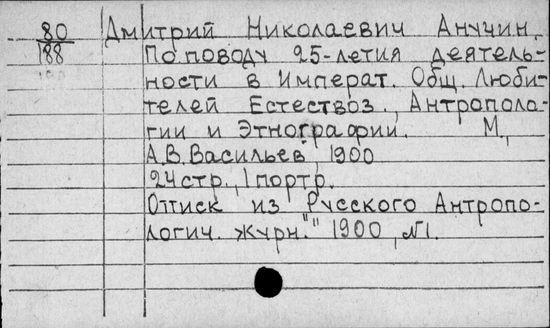 80 Дмитрий Николаевич Анучин.
188 По поводу 25-летия деятель-
ности в Императ. Общ. Люби-
телей Естествоз., Антрополо-
гии и Этнографии. М.,
А.В. Васильев, 1900
24 стр., 1 портр.
Оттиск из "Русского Антропо-
логич. Журн." 1900, №1.